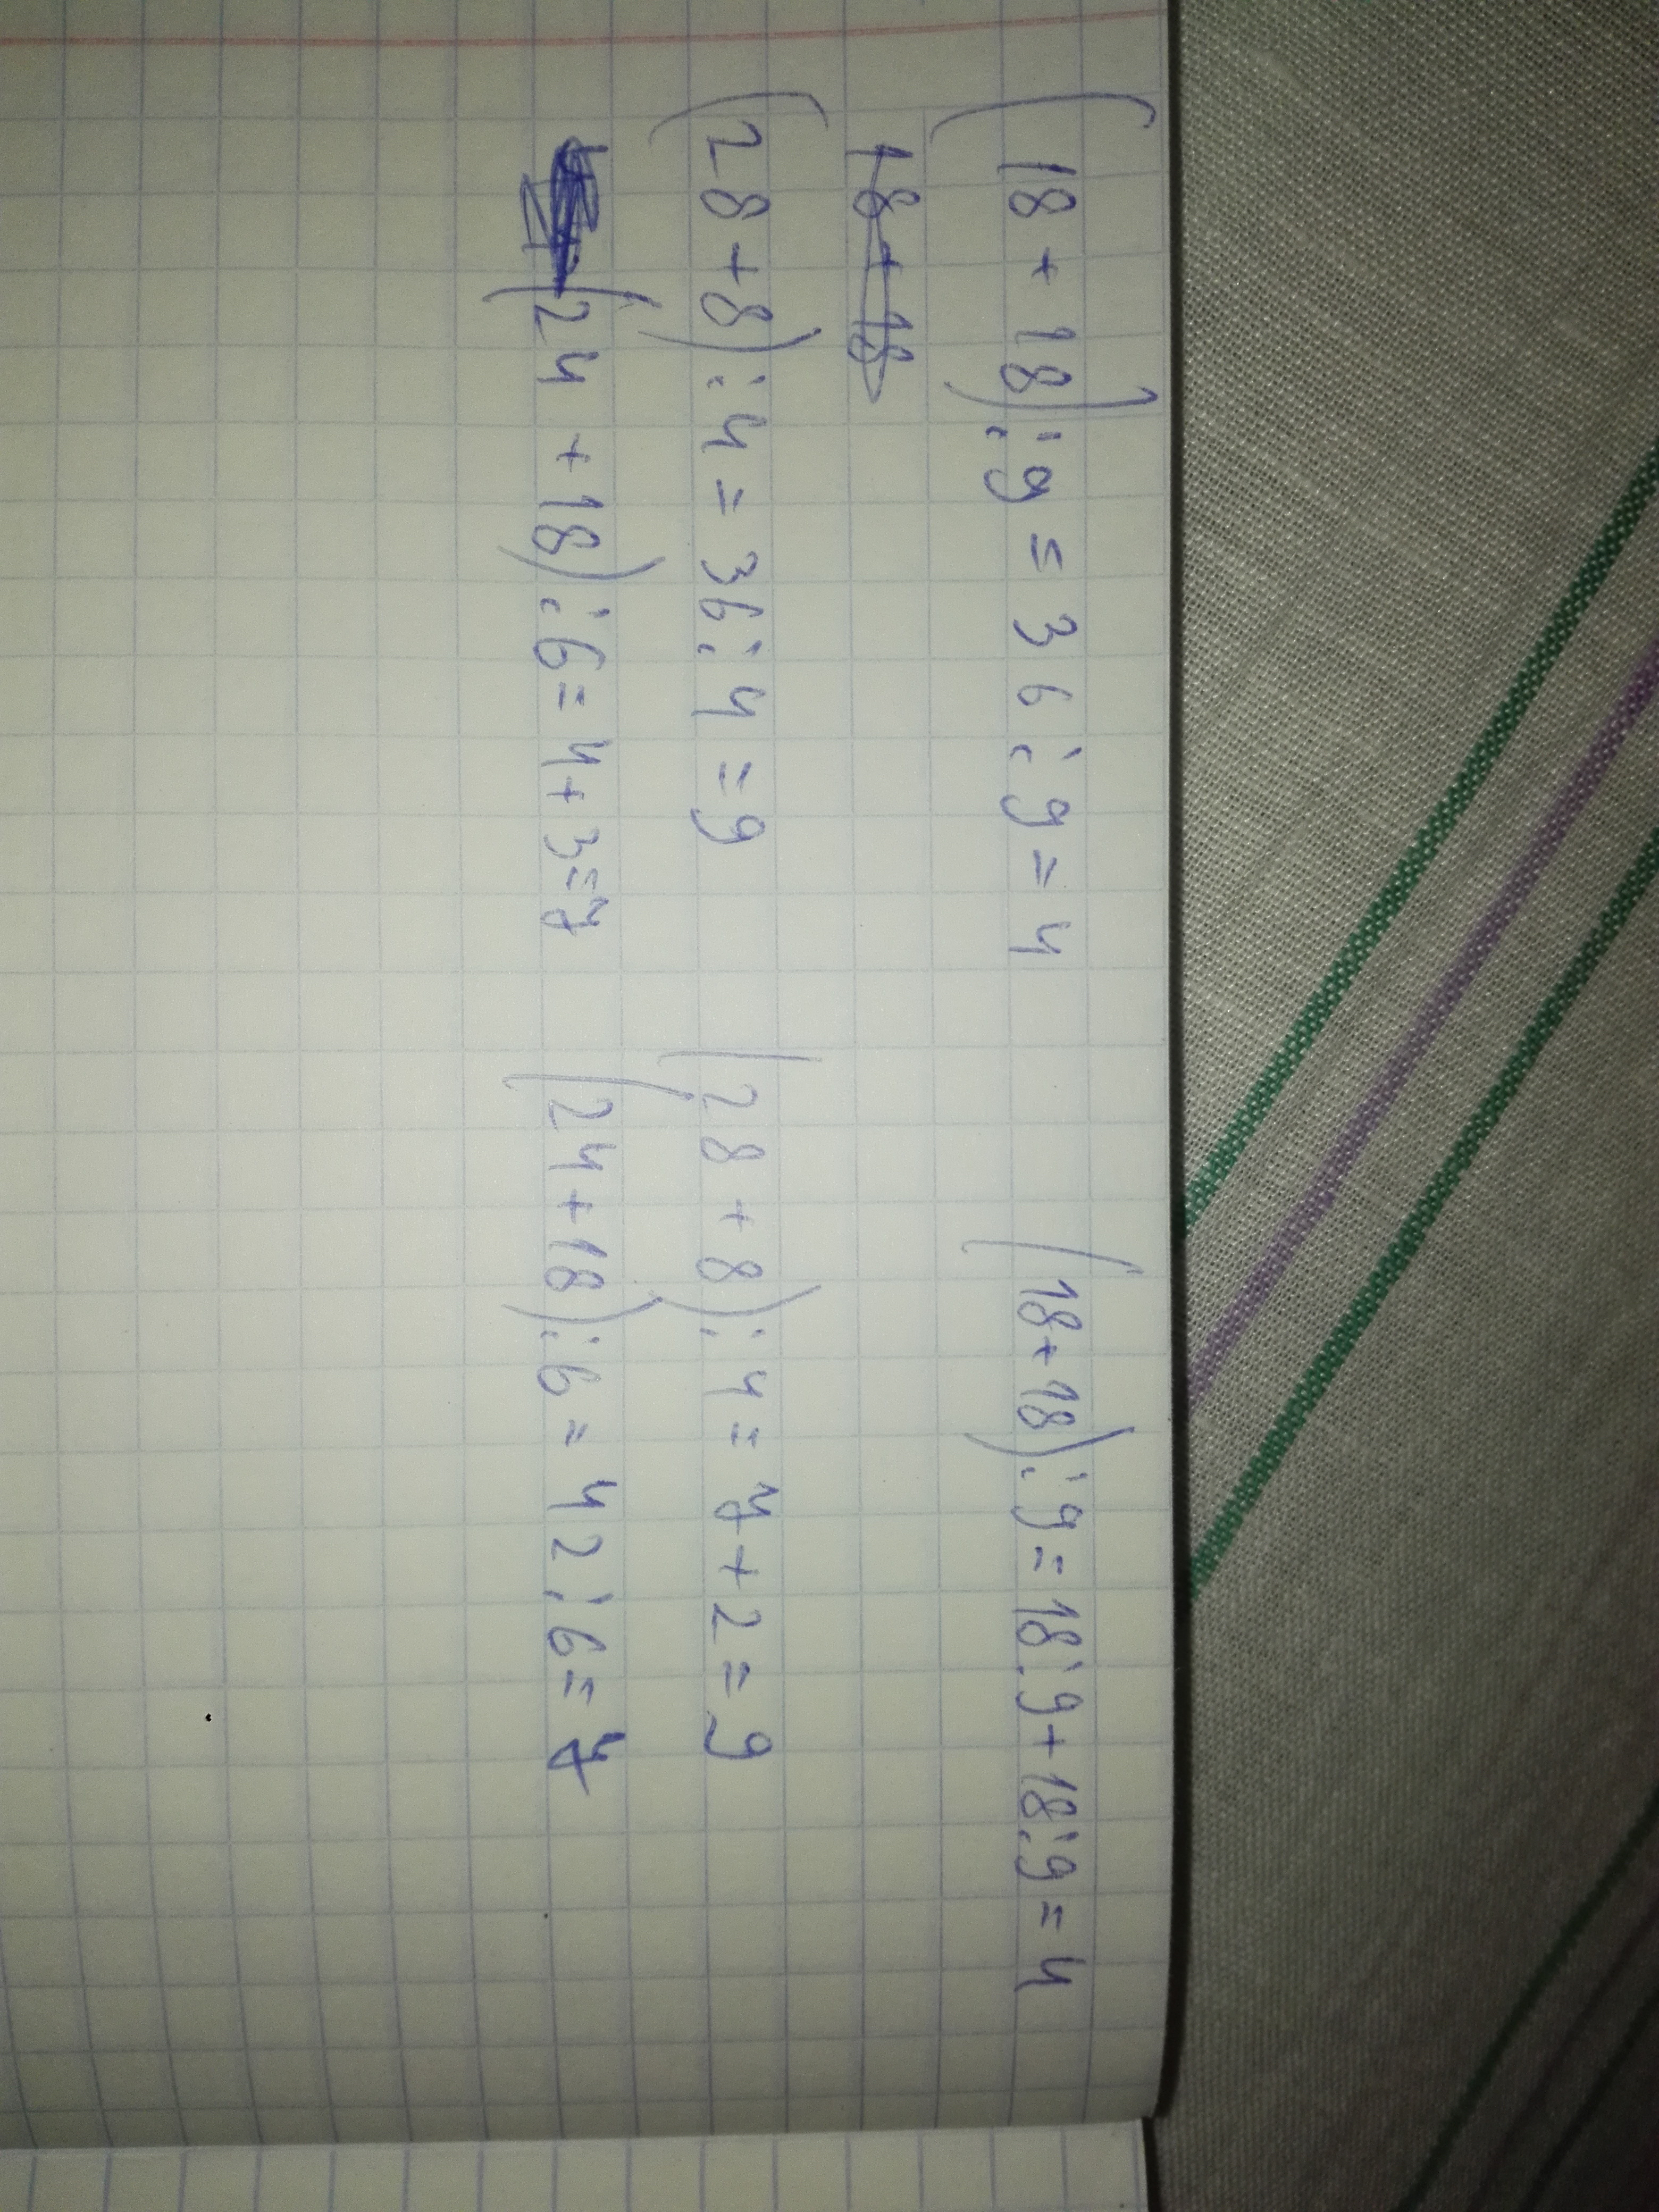 (18 + 18) : 9 = 36 : 9 = 4 (18+18) : 9 = 18:9 + 18:9 = 4
18 + 18
(28+8) : 4 = 36 : 4 = 9 (28 + 8) : 4 = 7 + 2 = 9
(24 + 18) : 6 = 4 + 3 = 7 (24 + 18) : 6 = 42 : 6 = 7